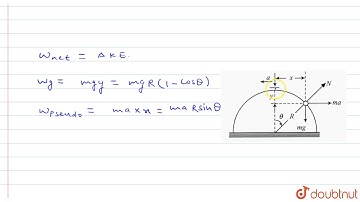 Wnet = ΔKE.
Wg = mgy = mgR(1-cosθ)
Wpseudo = ma×x = maRsinθ
a
x
N
y
ma
θ
R
mg
doubtnut